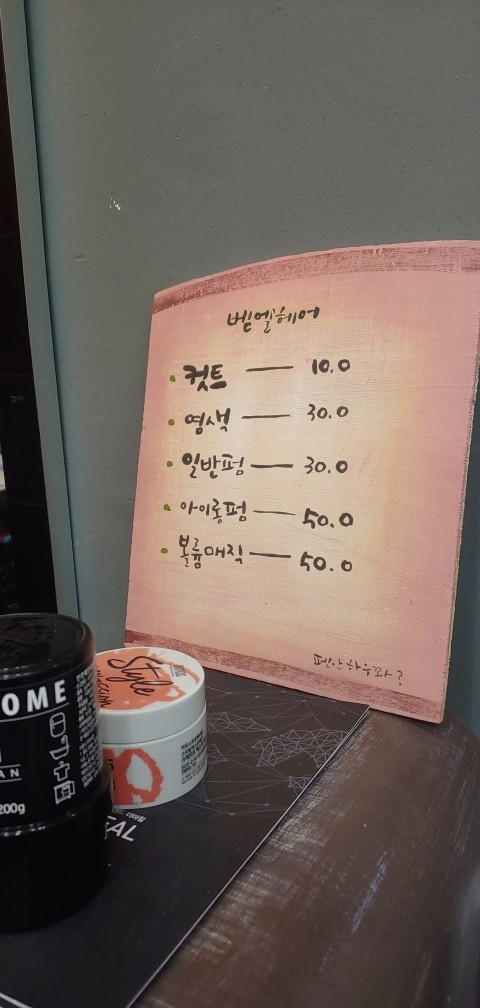 벧엘헤어
• 컷트 — 10.0
• 염색 — 30.0
• 일반펌 — 30.0
• 아이롱펌 — 50.0
• 볼륨매직 — 50.0
OME
AN
200g
Style